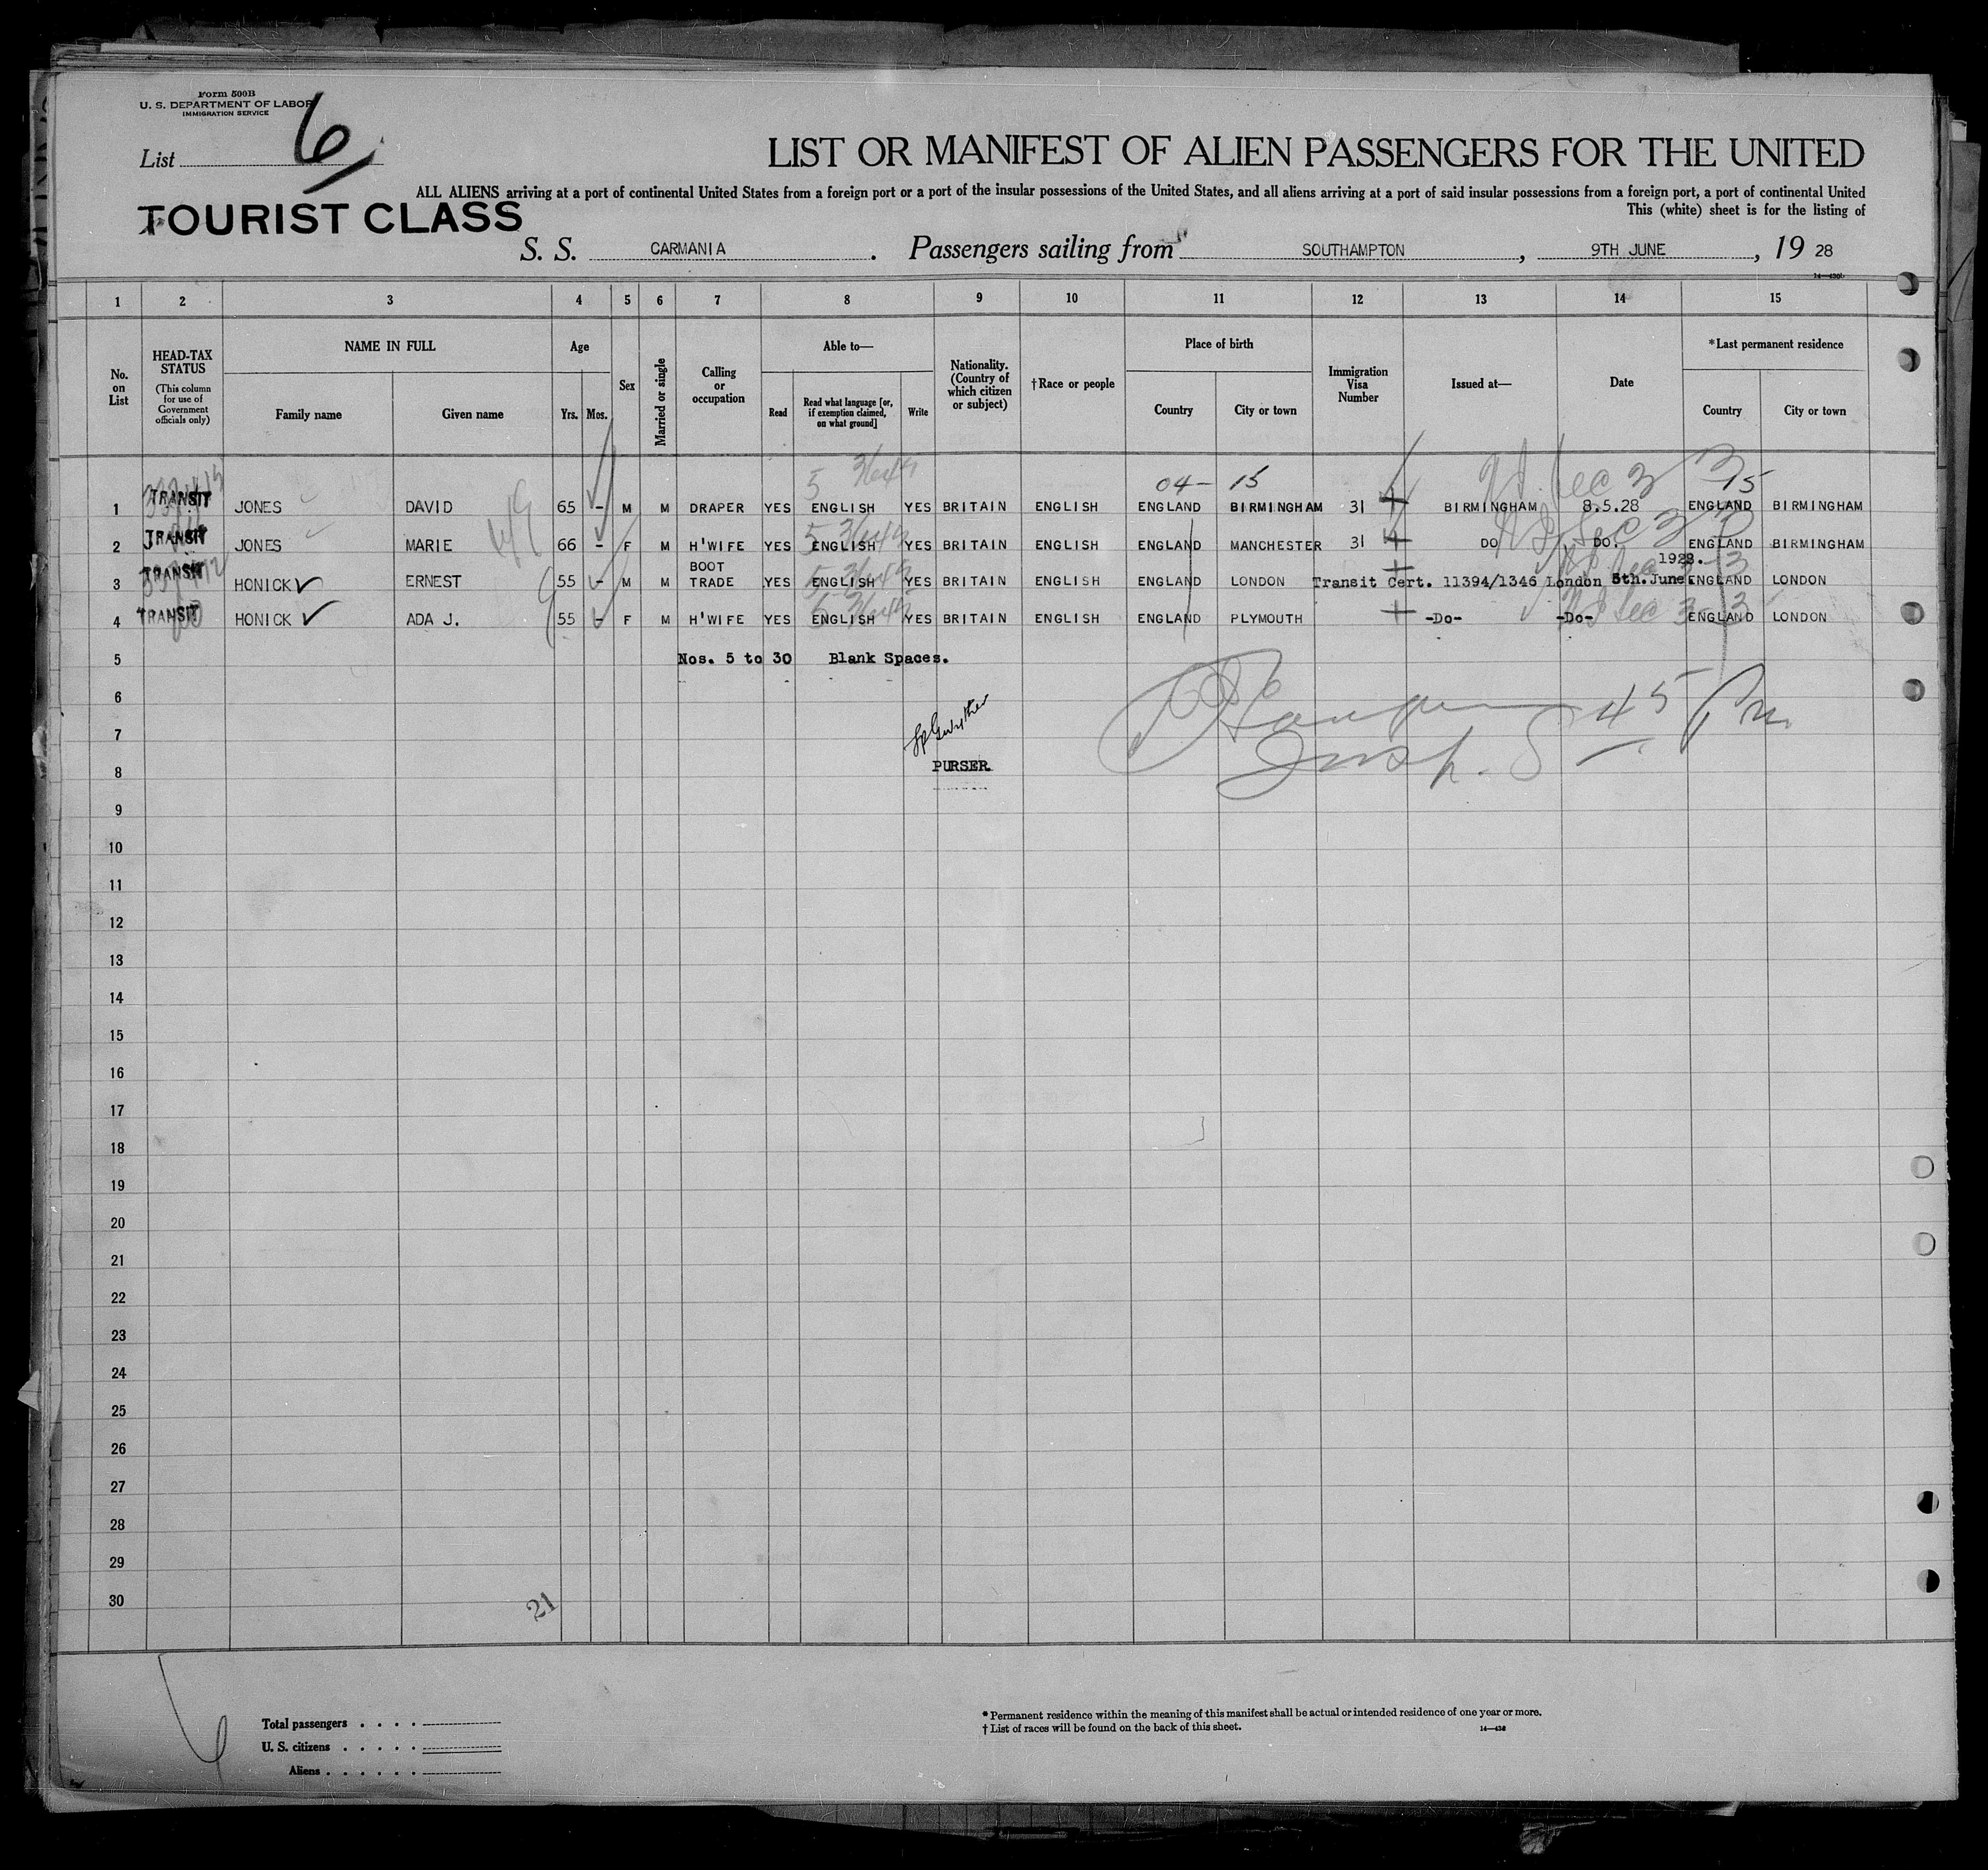 Form 500B
U. S. DEPARTMENT OF LABOR
IMMIGRATION SERVICE
List 6
LIST OR MANIFEST OF ALIEN PASSENGERS FOR THE UNITED
ALL ALIENS arriving at a port of continental United States from a foreign port or a port of the insular possessions of the United States, and all aliens arriving at a port of said insular possessions from a foreign port, a port of continental United
This (white) sheet is for the listing of
TOURIST CLASS
S. S. CARMANIA . Passengers sailing from SOUTHAMPTON , 9TH JUNE , 19 28
1 2 3 4 5 6 7 8 9 10 11 12 13 14 15
No. on List
HEAD-TAX STATUS (This column for use of Government officials only)
NAME IN FULL
Family name Given name
Age
Yrs. Mos.
Sex
Married or single
Calling or occupation
Able to—
Read
Read what language [or, if exemption claimed, on what ground]
Write
Nationality. (Country of which citizen or subject)
†Race or people
Place of birth
Country City or town
Immigration Visa Number
Issued at—
Date
*Last permanent residence
Country City or town
04- 15 15
1 TRANSIT JONES DAVID 65 - M M DRAPER YES ENGLISH YES BRITAIN ENGLISH ENGLAND BIRMINGHAM 31 BIRMINGHAM 8.5.28 ENGLAND BIRMINGHAM
2 TRANSIT JONES MARIE 66 - F M H'WIFE YES ENGLISH YES BRITAIN ENGLISH ENGLAND MANCHESTER 31 DO DO. ENGLAND BIRMINGHAM
3 TRANSIT HONICK ERNEST 55 - M M BOOT TRADE YES ENGLISH YES BRITAIN ENGLISH ENGLAND LONDON Transit Cert. 11394/1346 London 5th. June 1928. ENGLAND LONDON
4 TRANSIT HONICK ADA J. 55 - F M H'WIFE YES ENGLISH YES BRITAIN ENGLISH ENGLAND PLYMOUTH -Do- -Do- ENGLAND LONDON
5 Nos. 5 to 30 Blank Spaces.
6
7
8 PURSER
9
10
11
12
13
14
15
16
17
18
19
20
21
22
23
24
25
26
27
28
29
30
21
Total passengers . . . .
U. S. citizens . . . . .
Aliens . . . . . .
* Permanent residence within the meaning of this manifest shall be actual or intended residence of one year or more.
† List of races will be found on the back of this sheet.